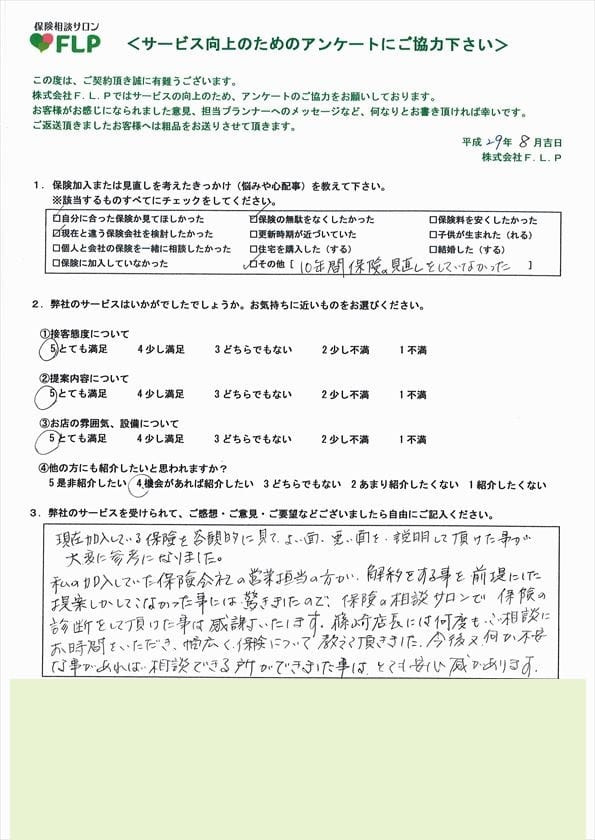 保険相談サロン
FLP
＜サービス向上のためのアンケートにご協力下さい＞
この度は、ご契約頂き誠に有難うございます。
株式会社Ｆ．Ｌ．Ｐではサービスの向上のため、アンケートのご協力をお願いしております。
お客様がお感じになられました意見、担当プランナーへのメッセージなど、何なりとお書き頂ければ幸いです。
ご返送頂きましたお客様へは粗品をお送りさせて頂きます。
平成 29年 8月吉日
株式会社Ｆ．Ｌ．Ｐ
１．保険加入または見直しを考えたきっかけ（悩みや心配事）を教えて下さい。
※該当するものすべてにチェックをしてください。
□自分に合った保険か見てほしかった □保険の無駄をなくしたかった □保険料を安くしたかった
□現在と違う保険会社を検討したかった □更新時期が近づいていた □子供が生まれた（れる）
□個人と会社の保険を一緒に相談したかった □住宅を購入した（する） □結婚した（する）
□保険に加入していなかった □その他［ 10年間保険の見直しをしていなかった ］
２．弊社のサービスはいかがでしたでしょうか。お気持ちに近いものをお選びください。
①接客態度について
５とても満足 ４少し満足 ３どちらでもない ２少し不満 １不満
②提案内容について
５とても満足 ４少し満足 ３どちらでもない ２少し不満 １不満
③お店の雰囲気、設備について
５とても満足 ４少し満足 ３どちらでもない ２少し不満 １不満
④他の方にも紹介したいと思われますか？
５是非紹介したい ４機会があれば紹介したい ３どちらでもない ２あまり紹介したくない １紹介したくない
３．弊社のサービスを受けられて、ご感想・ご意見・ご要望などございましたら自由にご記入ください。
現在加入している保険を客観的に見て、よい面、悪い面を、説明して頂けた事が
大変に参考になりました。
私の加入していた保険会社の営業担当の方が、解約をする事を前提にした
提案しかしてこなかった事には驚きましたので、保険の相談サロンで保険の
診断をして頂けた事は感謝いたします。篠崎店長には何度もご相談に
お時間をいただき、幅広く保険について教えて頂きました。今後又何か不安
な事があれば相談できる所ができました事は、とても安心感があります。